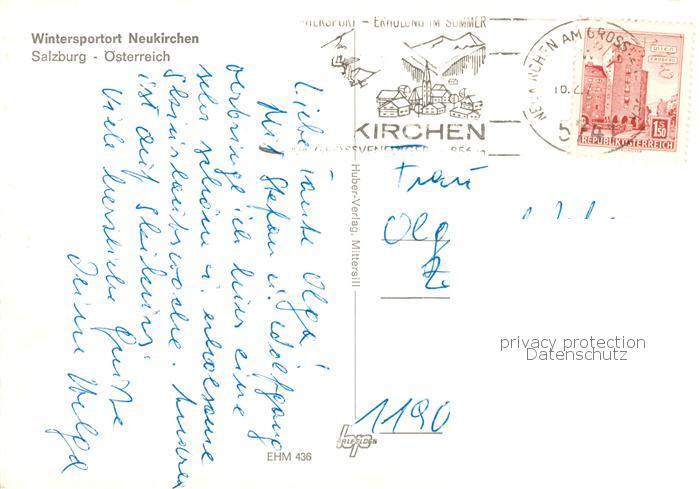 Wintersportort Neukirchen
Salzburg - Österreich
WINTERSPORT - ERHOLUNG IM SOMMER
KIRCHEN
NEUKIRCHEN AM GROSSVENEDIGER
5741
1.50
REPUBLIK ÖSTERREICH
Liebe Tante Olga!
Mit Stefan u. Wolfgang
verbringe ich hier eine
sehr schöne u. erholsame
Skiurlaubswoche.
ist auf Skikurs.
Viele herzliche Grüße
Deine Helga
Huber-Verlag, Mittersill
Frau
Olg
Z
1190
privacy protection
Datenschutz
EHM 436